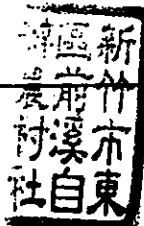 新竹市東
區前溪自
農村社